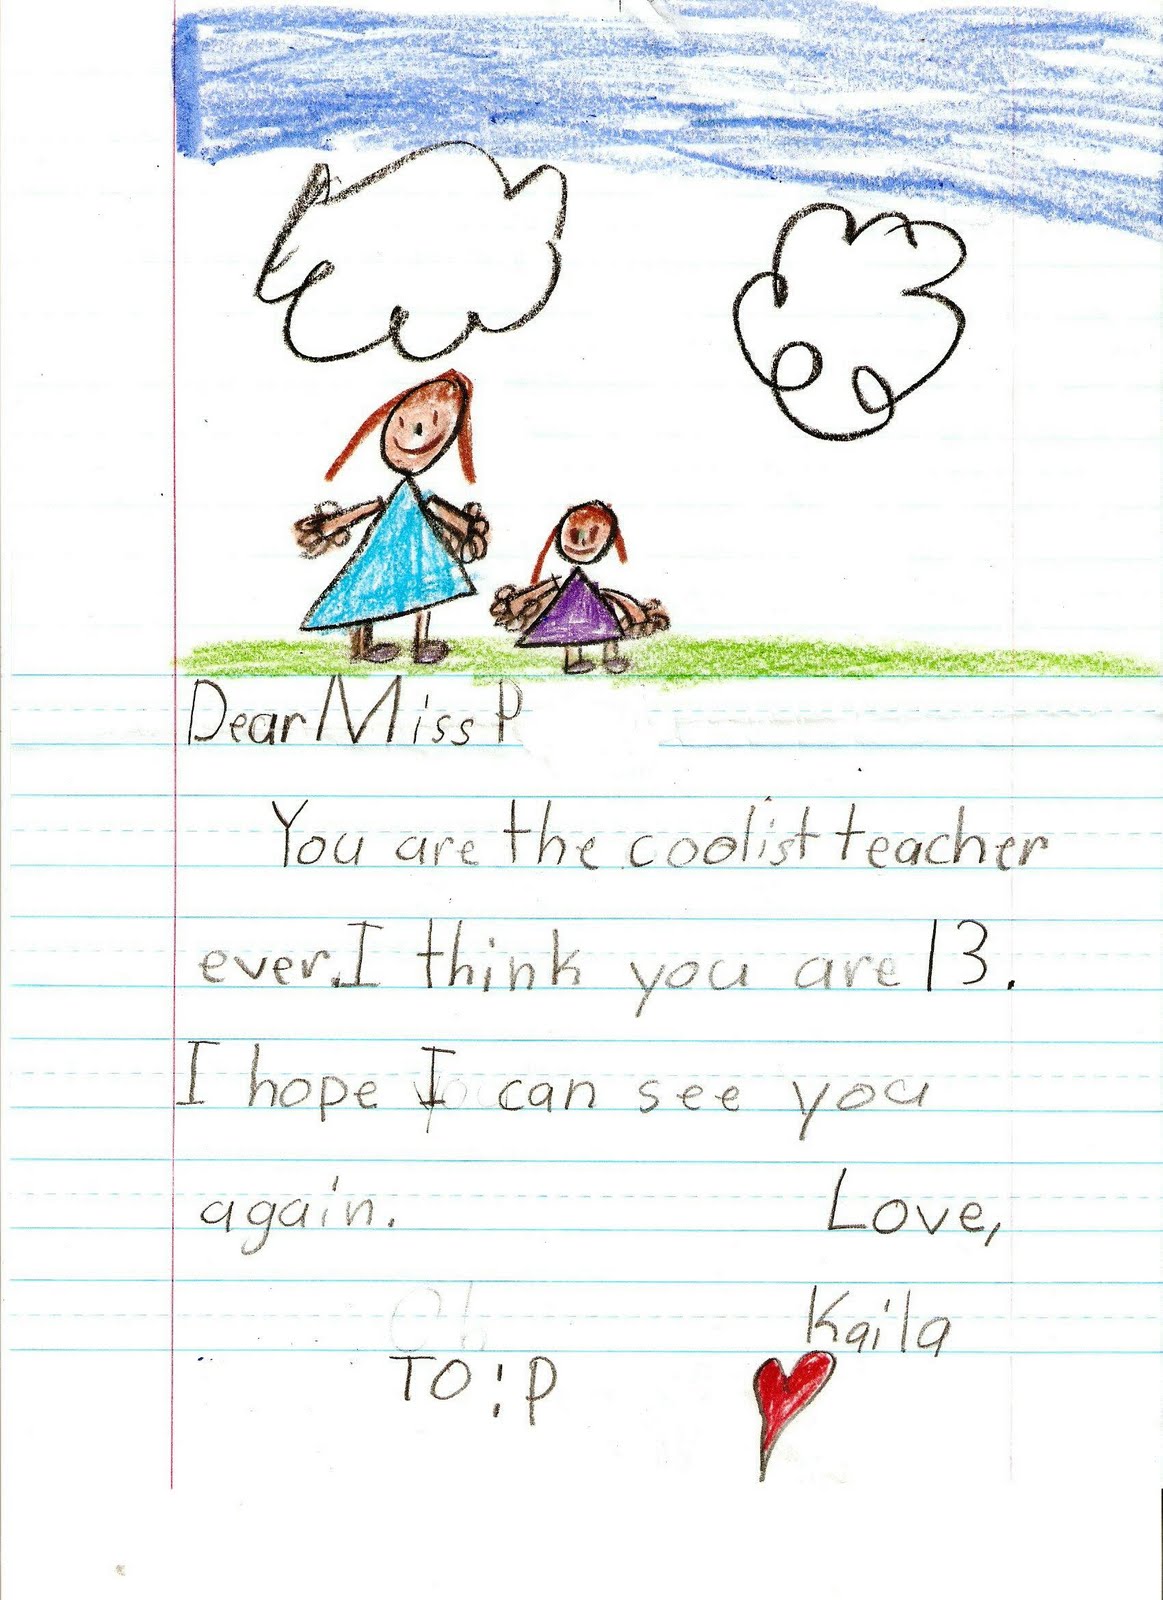 Dear Miss P
You are the coolist teacher
ever. I think you are 13.
I hope I can see you
again. Love,
Kaila
TO: P